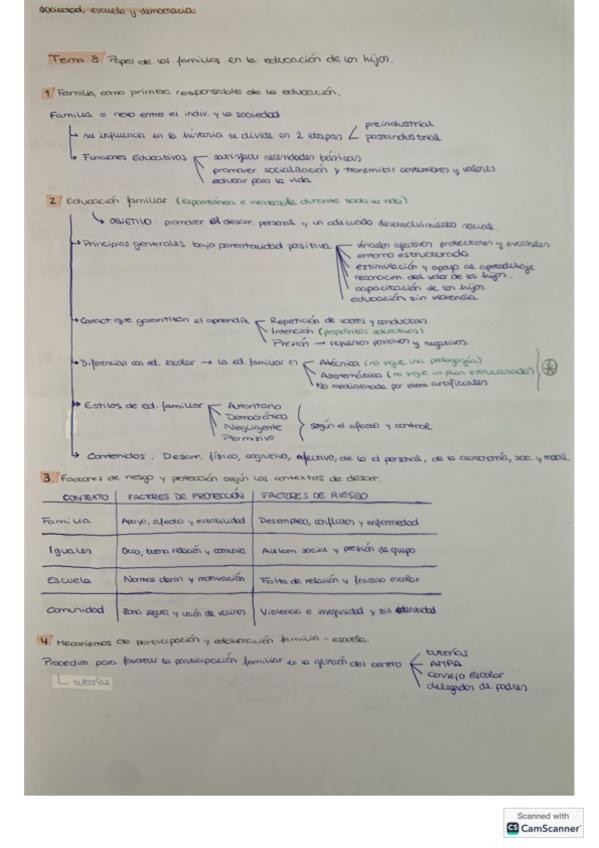 Sociedad, escuela y democracia.
Tema 8: Papel de las familias en la educación de los hijos.
1. Familia, como primera responsable de la educación.
Familia = nexo entre el indiv. y la sociedad
↳ su influencia en la historia se divide en 2 etapas < preindustrial
postindustrial
↳ Funciones Educativas < satisfacer necesidades básicas
promover socialización y transmitir costumbres y valores
educar para la vida
2. Educación familiar (espontánea e inevitable durante toda la vida)
↳ OBJETIVO: promover el desarr. personal y un adecuado desenvolvimiento social.
Principios generales bajo parentalidad positiva
vínculos afectivos protectores y estables
entorno estructurado
estimulación y apoyo al aprendizaje
reconocim. del valor de los hijos.
capacitación de los hijos.
educación sin violencia
Caract. que garantizan el aprendiz. < Repetición de valores y conductas
Intención (propósitos educativos)
Presión → refuerzos positivos y negativos.
Diferencias con ed. escolar → la ed. familiar es < Atécnica (no sigue una pedagogía)
Asistemática (no sigue un plan estructurado)
No mediatizada por elem. artificiales
Estilos de ed. familiar
Autoritario
Democrático
Negligente
Permisivo
según el afecto y control
Contenidos: Desarr. físico, cognitivo, afectivo, de la id personal, de la autonomía, soc. y moral
3. Factores de riesgo y protección según los contextos de desarr.
CONTEXTO FACTORES DE PROTECCIÓN FACTORES DE RIESGO
Familia Apoyo, afecto y estabilidad Desempleo, conflictos y enfermedad
Iguales Ocio, buena relación y comunic. Aislam. social y presión de grupo
Escuela Normas claras y motivación Falta de relación y fracaso escolar
Comunidad Zona segura y unión de vecinos Violencia e inseguridad y sin identidad
4. Mecanismos de participación y colaboración familia - escuela.
Procedim. para favorecer la participación familiar en la gestión del centro
tutorías
AMPA
consejo escolar
delegados de padres
tutorías
Scanned with
CS CamScanner